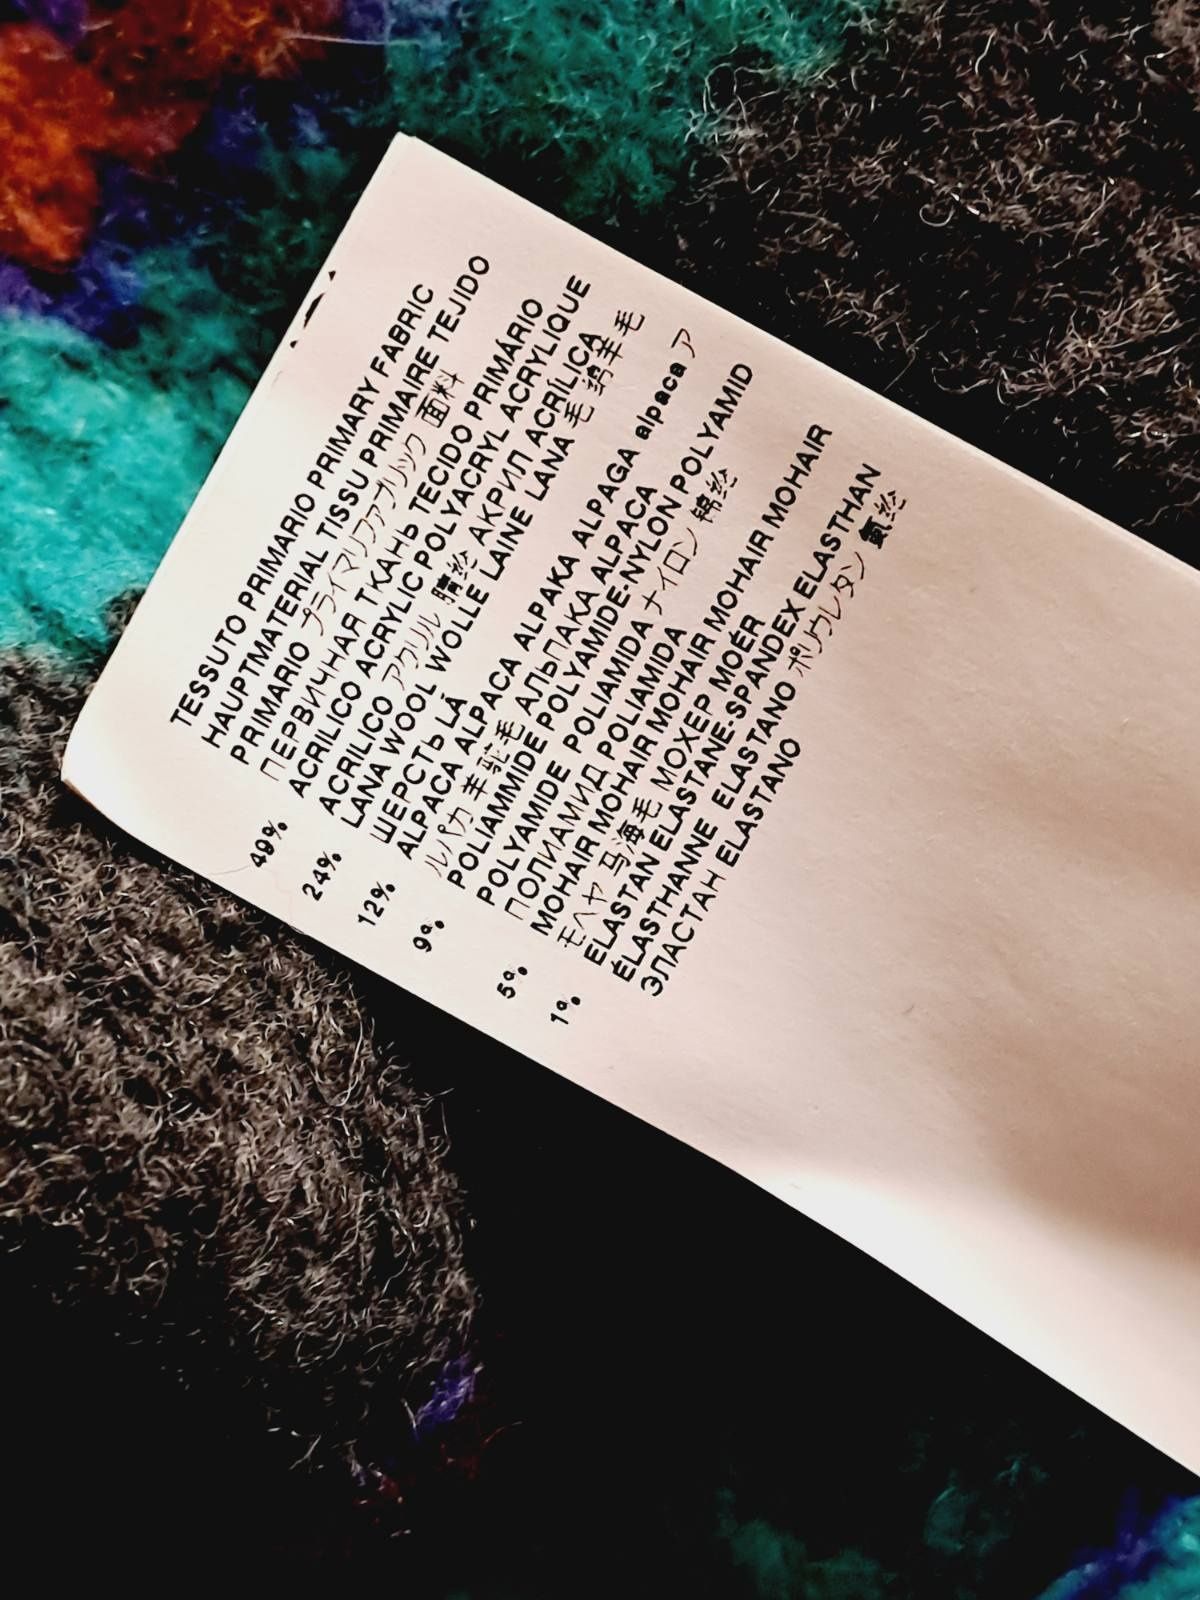 TESSUTO PRIMARIO PRIMARY FABRIC
HAUPTMATERIAL TISSU PRIMAIRE TEJIDO
PRIMARIO プライマリファブリック 面料
ПЕРВИЧНАЯ ТКАНЬ TECIDO PRIMÁRIO
49% ACRILICO ACRYLIC POLYACRYL ACRYLIQUE
ACRILICO アクリル 腈纶 АКРИЛ ACRÍLICA
24% LANA WOOL WOLLE LAINE LANA 毛 绵羊毛
ШЕРСТЬ LÃ
12% ALPACA ALPACA ALPAKA ALPAGA alpaca ア
ルパカ 羊驼毛 АЛЬПАКА ALPACA
9% POLIAMMIDE POLYAMIDE-NYLON POLYAMID
POLYAMIDE POLIAMIDA ナイロン 锦纶
ПОЛИАМИД POLIAMIDA
5% MOHAIR MOHAIR MOHAIR MOHAIR MOHAIR
モヘヤ 马海毛 МОХЕР MOÉR
1% ELASTAN ELASTANE-SPANDEX ELASTHAN
ÉLASTHANNE ELASTANO ポリウレタン 氨纶
ЭЛАСТАН ELASTANO